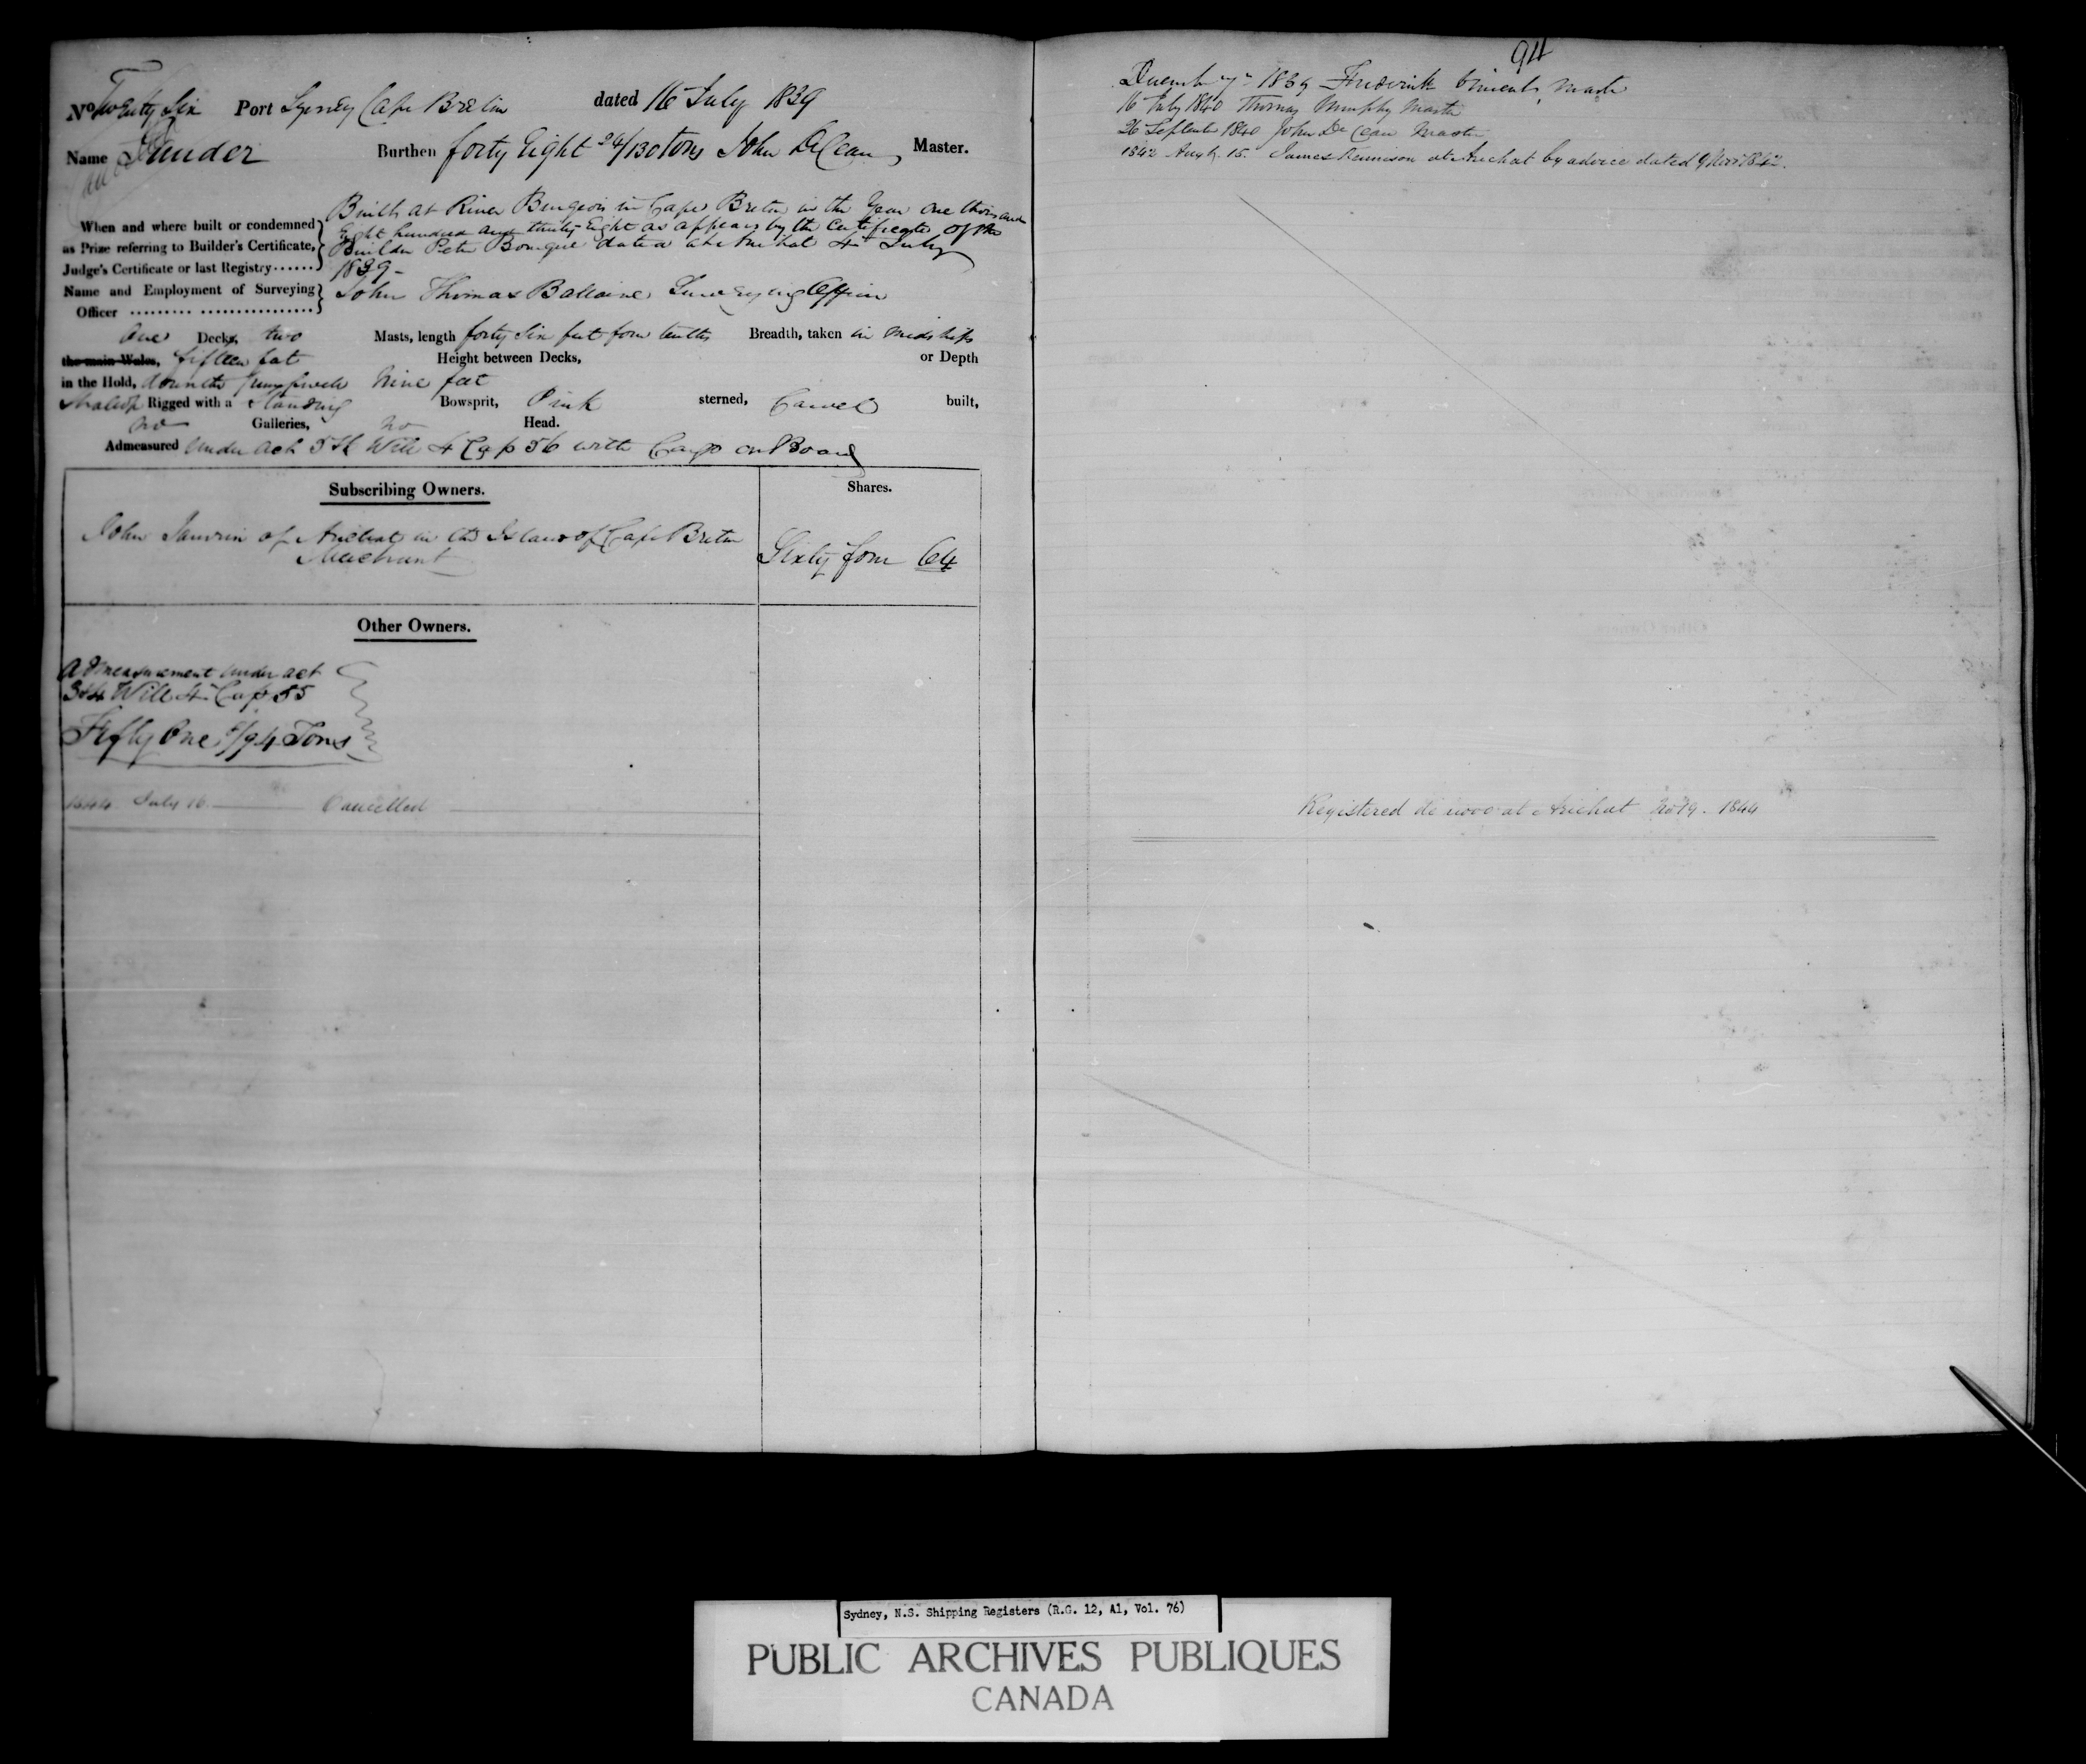 No Twenty Six Port Sydney Cape Breton dated 16 July 1839
Name Burthen forty Eight 24/130 Tons John DeCean, Master.
When and where built or condemned as Prize referring to Builder's Certificate, Judge's Certificate or last Registry......
Built at River Burgeois in Cape Breton in the Year One thousand
Eight hundred and thirty Eight as appears by the Certificate of the
Builder Peter Bourque dated at Arichat 4th July
1839 -
Name and Employment of Surveying Officer ......... ................
John Thomas Ballaine Surveying Officer
One Decks, two Masts, length forty Six feet four tenths Breadth, taken in Midships
the main Wales, fifteen feet Height between Decks, or Depth
in the Hold, nine feet
Shallop Rigged with a Standing Bowsprit, Pink sterned, Carvel built,
no Galleries, no Head.
Admeasured Under Act Will 4 Cap 56 with Cargo on Board
Subscribing Owners.
Shares.
John Janvrin of Arichat in the Island of Cape Breton
Merchant
Sixty four 64
Other Owners.
Admeasurement under act
3&4 Will 4 Cap 55
Fifty One /94 Tons
1844 July 16. Cancelled
94
December 7 1839 Frederick Master
16 July 1840 Thomas Murphy Master
26 September 1840 John De Cean Master
1842 Augt. 15. James Kennison at Arichat by advice dated 9 Novr 1842.
Registered de novo at Arichat No 19. 1844
Sydney, N.S. Shipping Registers (R.G. 12, A1, Vol. 76)
PUBLIC ARCHIVES PUBLIQUES
CANADA